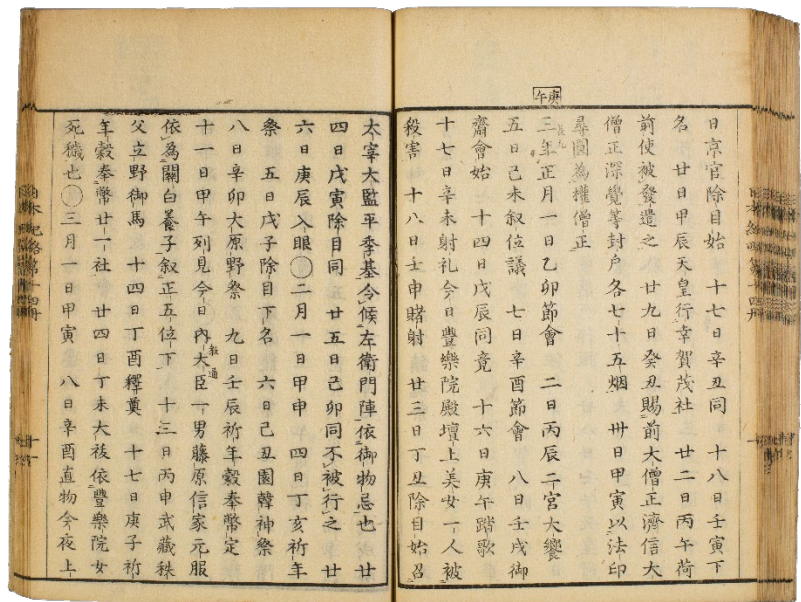 庚午
日京官除目始 十七日辛丑同 十八日壬寅下
名 廿日甲辰天皇行幸賀茂社 廿二日丙午荷
前使被發遣之 廿九日癸丑賜前大僧正濟信大
僧正深覺等封户各七十五烟 卅日甲寅以法印
尋圓為權僧正
三年正月一日乙卯節會 二日丙辰二宮大饗
五日己未叙位議 七日辛酉節會 八日壬戌御
齋會始 十四日戊辰同竟 十六日庚午踏歌
十七日辛未射礼今日豐樂院殿壇上美女一人被
殺害 十八日壬申賭射 廿三日丁丑除目始召
太宰大監平季基令候左衛門陣依御物忌也 廿
四日戊寅除目同 廿五日己卯同不被行之 廿
六日庚辰入眼〇二月一日甲申 四日丁亥祈年
祭 五日戊子除目下名 六日己丑園韓神祭
八日辛卯大原野祭 九日壬辰祈年穀奉幣定
十一日甲午列見今日内大臣一男藤原信家元服
教通
依為關白養子叙正五位下 十三日丙申武藏秩
父立野御馬 十四日丁酉釋奠 十七日庚子祈
年穀奉幣廿一社 廿四日丁未大祓依豐樂院女
死穢也〇三月一日甲寅 八日辛酉直物今夜上